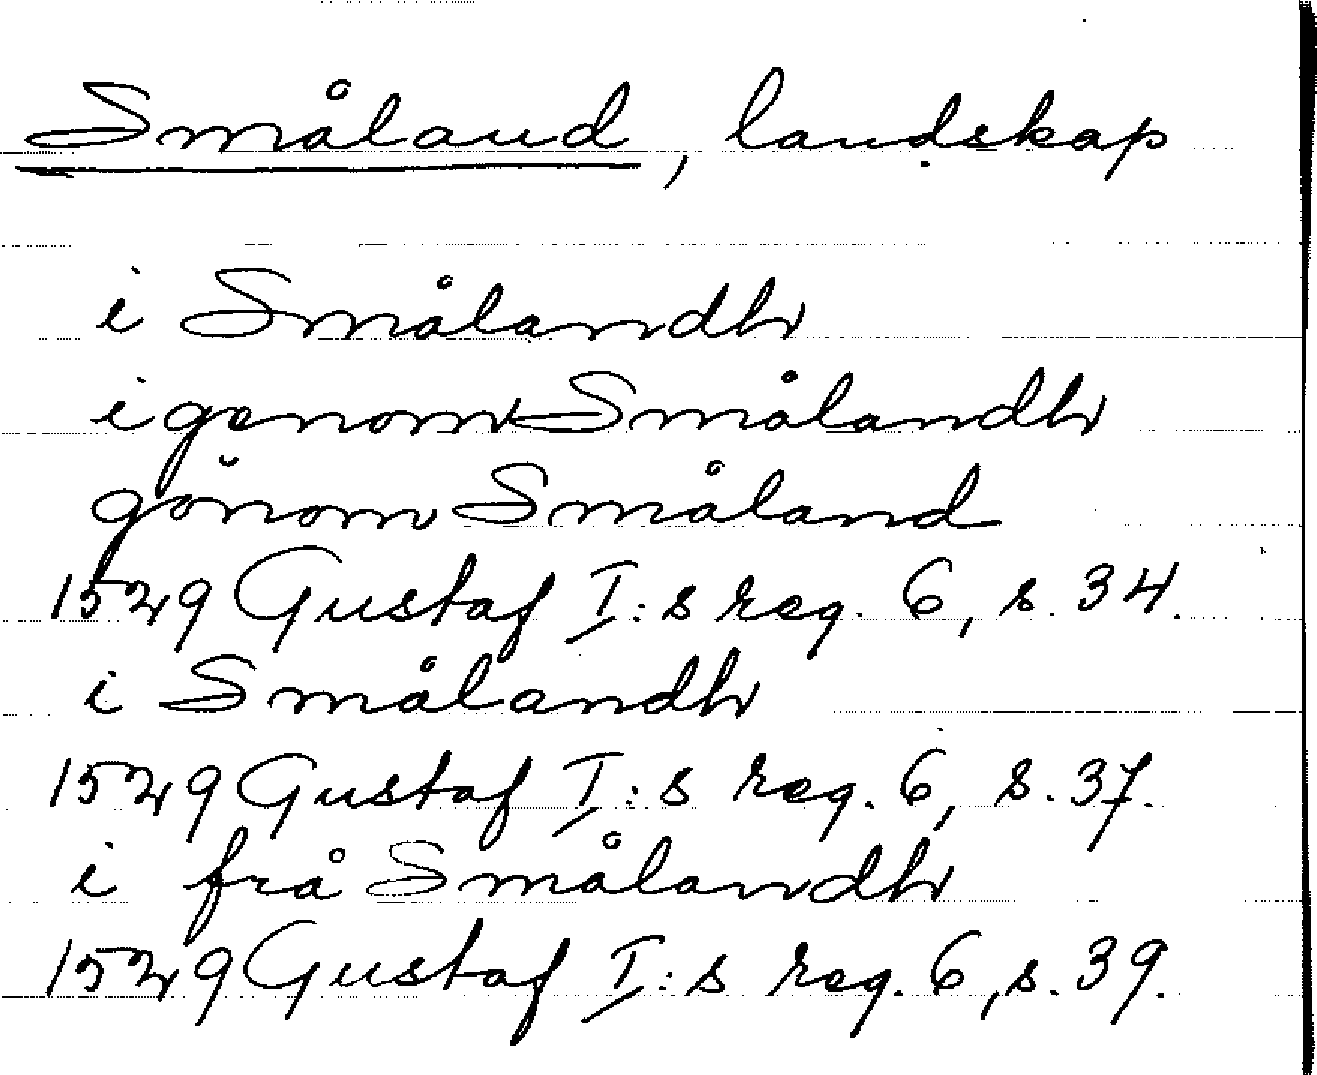 Småland, landskap
i Smålandh
igenom Smålandh
gönom Småland
1529 Gustaf I:s reg. 6, s. 34.
i Smålandh
1529 Gustaf I:s reg. 6, s. 37.
i frå Smålandh
1529 Gustaf I:s reg. 6, s. 39.